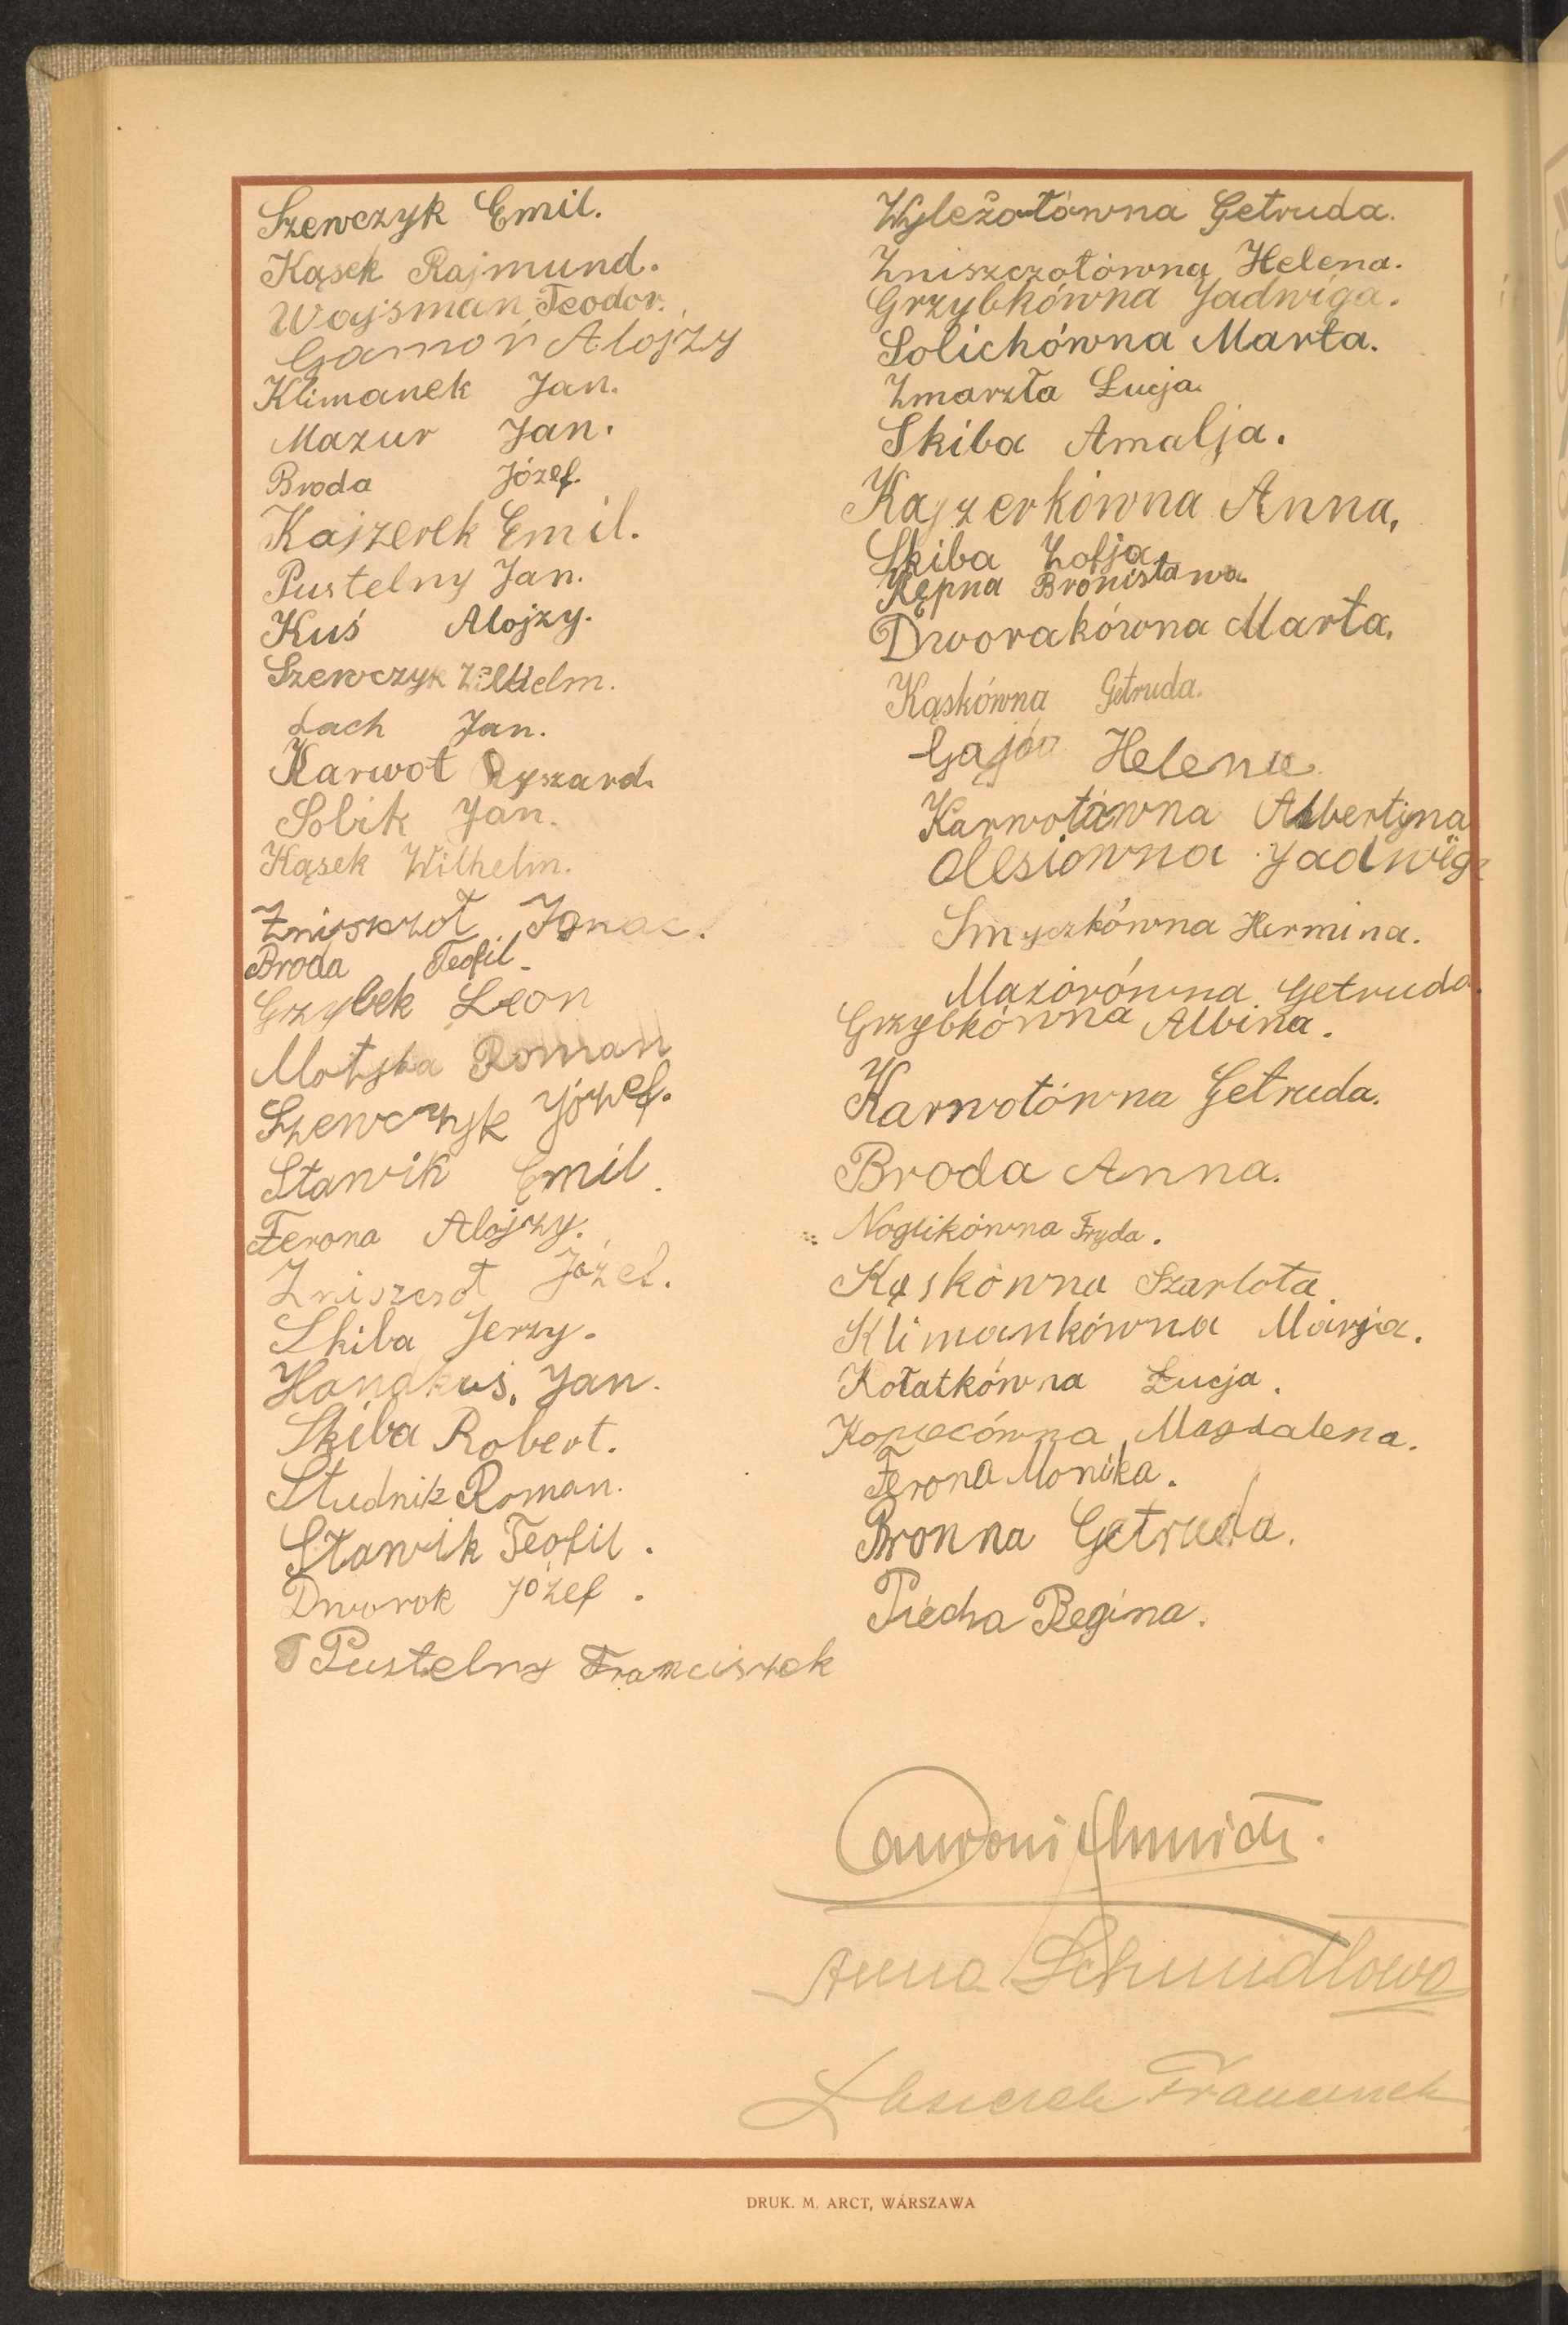 Szewczyk Emil.
Kąsek Rajmund.
Wojsman Teodor.
Gamoń Alojzy
Klimanek Jan.
Mazur Jan.
Broda Józef.
Kajzerek Emil.
Pustelny Jan.
Kuś Alojzy.
Szewczyk Wilhelm.
Lach Jan.
Karwot Ryszard.
Sobik Jan.
Kąsek Wilhelm.
Zniszczot Ignac.
Broda Teofil.
Grzybek Leon
Motyka Roman
Szewczyk Józef.
Stawik Emil.
Ferona Alojzy.
Zniszczot Józef.
Skiba Jerzy.
Jan.
Skiba Robert.
Studnik Roman.
Stawik Teofil.
Dworok Józef.
Pustelny Franciszek
Wyleżotówna Getruda.
Zniszczotówna Helena.
Grzybkówna Jadwiga.
Solichówna Marta.
Zmarzła Łucja.
Skiba Amalja.
Kajzerkówna Anna,
Skiba Zofja.
Kępna Bronisława.
Dworakówna Marta.
Kąskówna Getruda.
Gajda Helena.
Karwotówna Albertyna
Olesiówna Jadwiga
Smyczkówna Hermina.
Mazórówna Getruda.
Grzybkówna Albina.
Karwotówna Getruda.
Broda Anna.
Noglikówna Fryda.
Kąskówna Szarlota.
Klimankówna Marja.
Kołatkówna Łucja.
Kopiecówna Magdalena.
Ferona Monika.
Bronna Getruda.
Piecha Regina.
Anna Schmidtowa
Franciszek
DRUK. M. ARCT, WARSZAWA